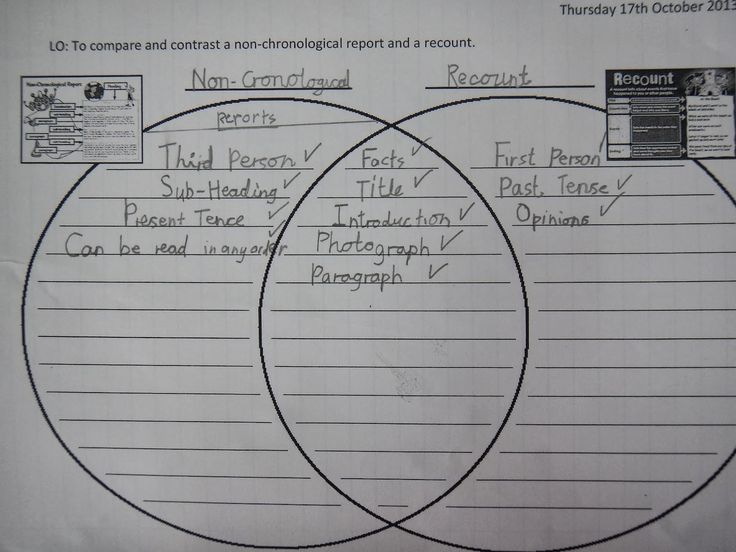 Thursday 17th October 2013
LO: To compare and contrast a non-chronological report and a recount.
Non-Cronological
Recount
Reports
Non-Chronological Report
Recount
Third Person ✓
Facts ✓
First Person ✓
Sub-Heading ✓
Title ✓
Past Tense ✓
Present Tence ✓
Introduction ✓
Opinions ✓
Can be read in any order ✓
Photograph ✓
Paragraph ✓